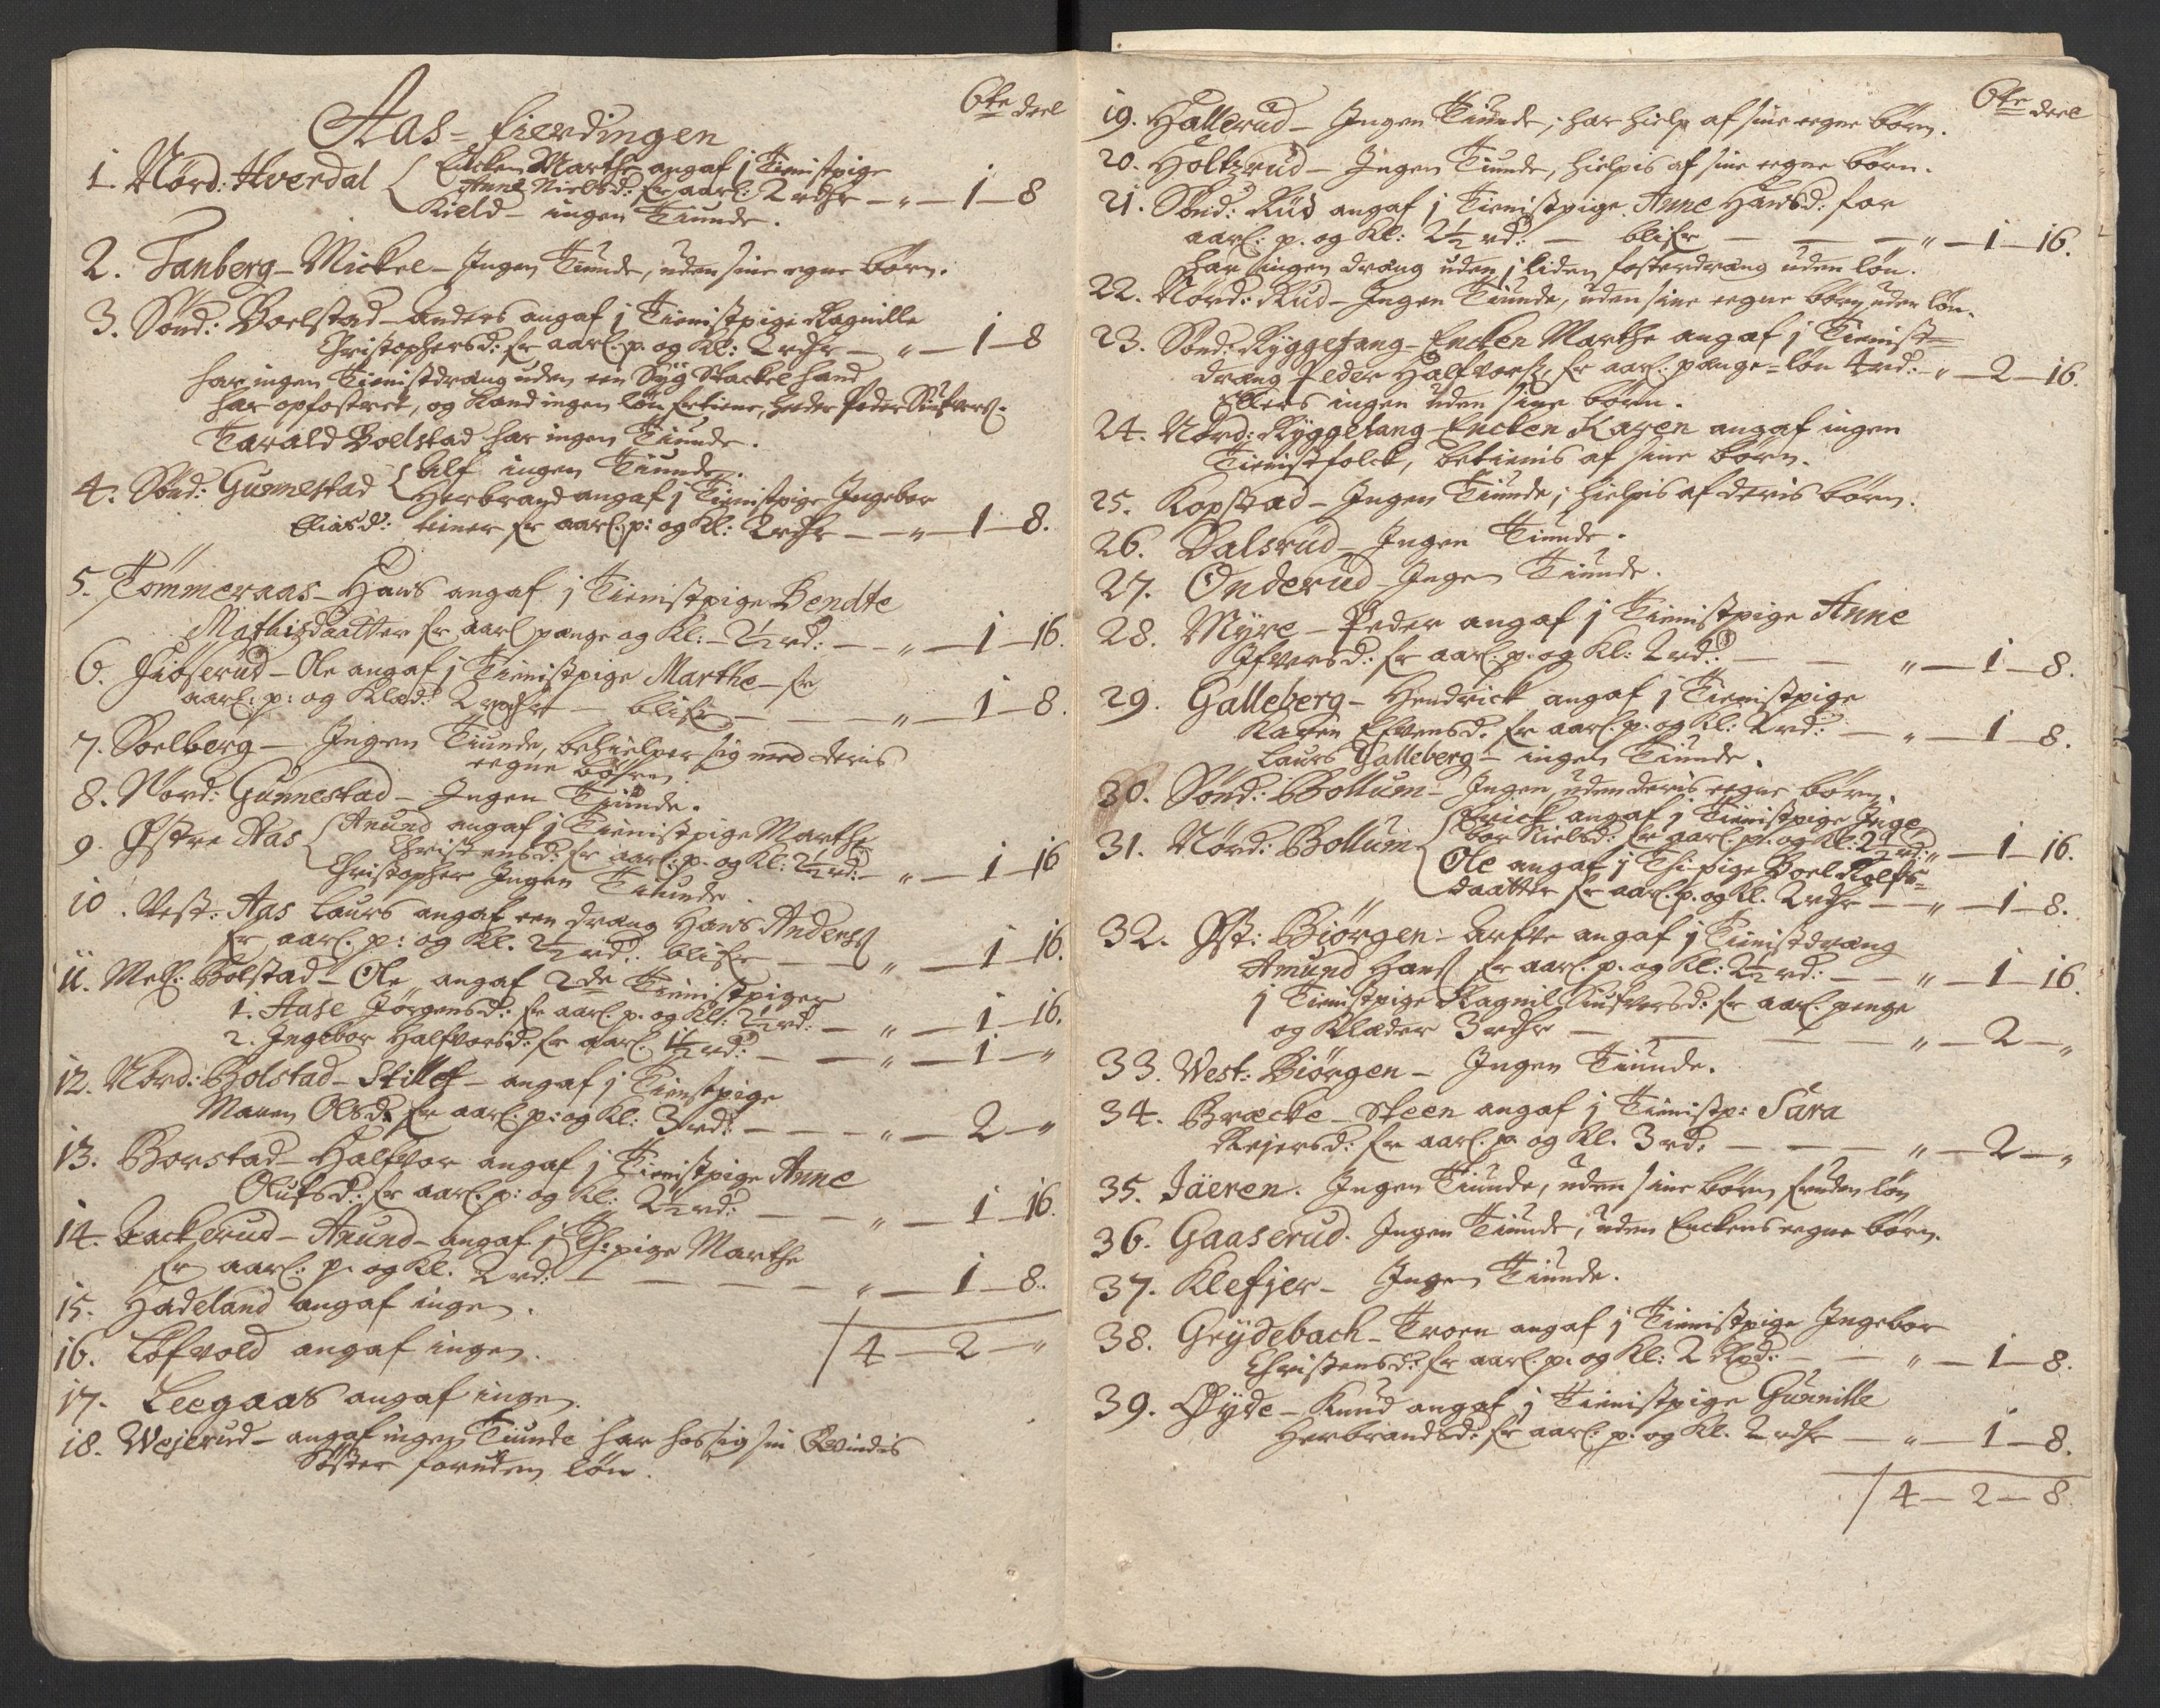 6te deel
Aas-fierdingen
1. Nørd: Hverdal { Encken Marthe angaf j Tienistpige
Anne Nielsd: fr aarl: 2 rdhr — „ — 1 — 8
Kield — ingen Tiunde.
2. Tanberg — Mickel — Ingen Tiunde, uden sine egne børn.
3. Sønd: Boelstad — Anders angaf j Tienistpige Ragnille
Christophersd: fr aarl: p. og Kl: 2 rdhr — „ — 1 — 8
har ingen Tienistdræng uden een Syg Stackel hand
har opfostret, og kand ingen løn fortiene, heder Peder
Tarald Boelstad har ingen Tiunde.
4. Sønd: Gunnestad { Alf ingen Tiunde.
Herbrand angaf j Tienistpige Ingebor
Eliasd: tiener fr aarl: p: og Kl: 2 rdhr — „ — 1 — 8.
5. Tømmeraas — Hans angaf j Tienistpige Bendte
Mathisdaatter fr aarl: pænge og Kl: — 2½ rd: — „ — 1 — 16.
6. Fiøserud — Ole angaf j Tienistpige Marthe — fr
aarl: p: og Klæd: 2 rdhr — blifr — „ — 1 — 8.
7. Soelberg — Ingen Tiunde, behielper sig med deris
eegne børn.
8. Nørd: Gunnestad — Ingen Tiunde.
9. Østre Aas { Anund angaf j Tienistpige Marthe
Christensd: fr aarl: p. og Kl: 2½ rd: — „ — 1 — 16
Christopher Ingen Tiunde.
10. Vest: Aas Laurs angaf een dræng Hans Anderss
fr aarl: p: og Kl. 2½ rd: blifr — „ — 1 — 16.
11. Mell: Bolstad — Ole angaf 2de Tienistpiger
1. Aase Jørgensd: fr aarl: p. og Kl: 2½ rd: — „ — 1 — 16.
2. Ingebor Halfvorsd: fr aarl: 1½ rd: — „ — 1 — „
12. Nørd: Bolstad — Stillef — angaf j Tienistpige
Maren Olsd: fr aarl: p: og Kl: 3 rd: — „ — 2 — „
13. Borstad — Halfvor angaf j Tienistpige Anne
Olufsd: fr aarl: p: og Kl: 2½ rd: — „ — 1 — 16.
14. Backerud — Anund — angaf j Th: pige Marthe
fr aarl: p. og Kl. 2 rd: — „ — 1 — 8.
15. Hadeland angaf ingen.
16. Løfvold angaf ingen.
4 — 2 — „
17. Leegaas angaf ingen.
18. Wejerud — angaf ingen Tiunde har hos sig sin Qvindis
Søster foruden løn.
6te deel
19. Hallerud — Ingen Tiunde, har hielp af sine eegne børn.
20. Holtzrud — Ingen Tiunde, hielpis af sine eegne børn.
21. Sønd: Rud angaf j Tienistpige Anne Hansd: for
aarl: p. og Kl: 2½ rd: — blifr — „ — 1 — 16.
har ingen dræng uden j liden fosterdræng uden løn.
22. Nørd: Rud — Ingen Tiunde, uden sine eegne børn uden løn.
23. Sønd: Ryggetang — Encken Marthe angaf j Tienist-
dræng Peder Halfvorss, fr aarl: pænge-løn 4 rd: „ — 2 — 16.
Ellers ingen uden sine børn.
24. Nørd: Ryggetang — Encken Karen angaf ingen
Tienistfolck, betienis af sine børn.
25. Kopstad — Ingen Tiunde, hielpis af deris børn.
26. Dalsrud — Ingen Tiunde.
27. Onderud — Ingen Tiunde.
28. Myre — Peder angaf j Tienistpige Anne
Ifversd: fr aarl: p. og Kl: 2 rd: — „ — 1 — 8.
29. Galleberg — Hendrick angaf j Tienistpige
Karen Efvensd. fr aarl: p. og Kl: 2 rd: — „ — 1 — 8.
Laurs Galleberg — ingen Tiunde.
30. Sønd: Bollum — Ingen, uden deris eegne børn.
31. Nørd: Bollum { Erick angaf j Tienistpige Inge
bor Nielsd: fr aarl: p. og Kl: 2½ rd: „ — 1 — 16.
Ole angaf j Th: pige Boel Rolfs-
daatter fr aarl: p. og Kl. 2 rdhr — „ — 1 — 8.
32. Øst: Biørgen — Arfve angaf j Tienistdræng
Amund Hanss fr aarl: p. og Kl: 2½ rd: — „ — 1 — 16
j Tienistpige Ragnil fr aarl: penge
og Klæder 3 rdhr — „ — 2 — „
33. West: Biørgen — Ingen Tiunde.
34. Bræcke — Steen angaf j Tienistp: Sara
Rejersd: fr aarl: p. og Kl. 3 rd. — „ — 2 — „
35. Jäeren. Ingen Tiunde, uden sine børn foruden løn
36. Gaaserud. Ingen Tiunde, uden Enckens eegne børn.
37. Klefjer — Ingen Tiunde.
38. Grydebach — Troen angaf j Tienistpige Ingebor
Christensd: fr aarl: p. og Kl: 2 Rd: — „ — 1 — 8.
39. Øyde — Knud angaf j Tienistpige Gunnille
Herbrandsd: fr aarl: p. og Kl. 2 rdhr — „ — 1 — 8.
4 — 2 — 8